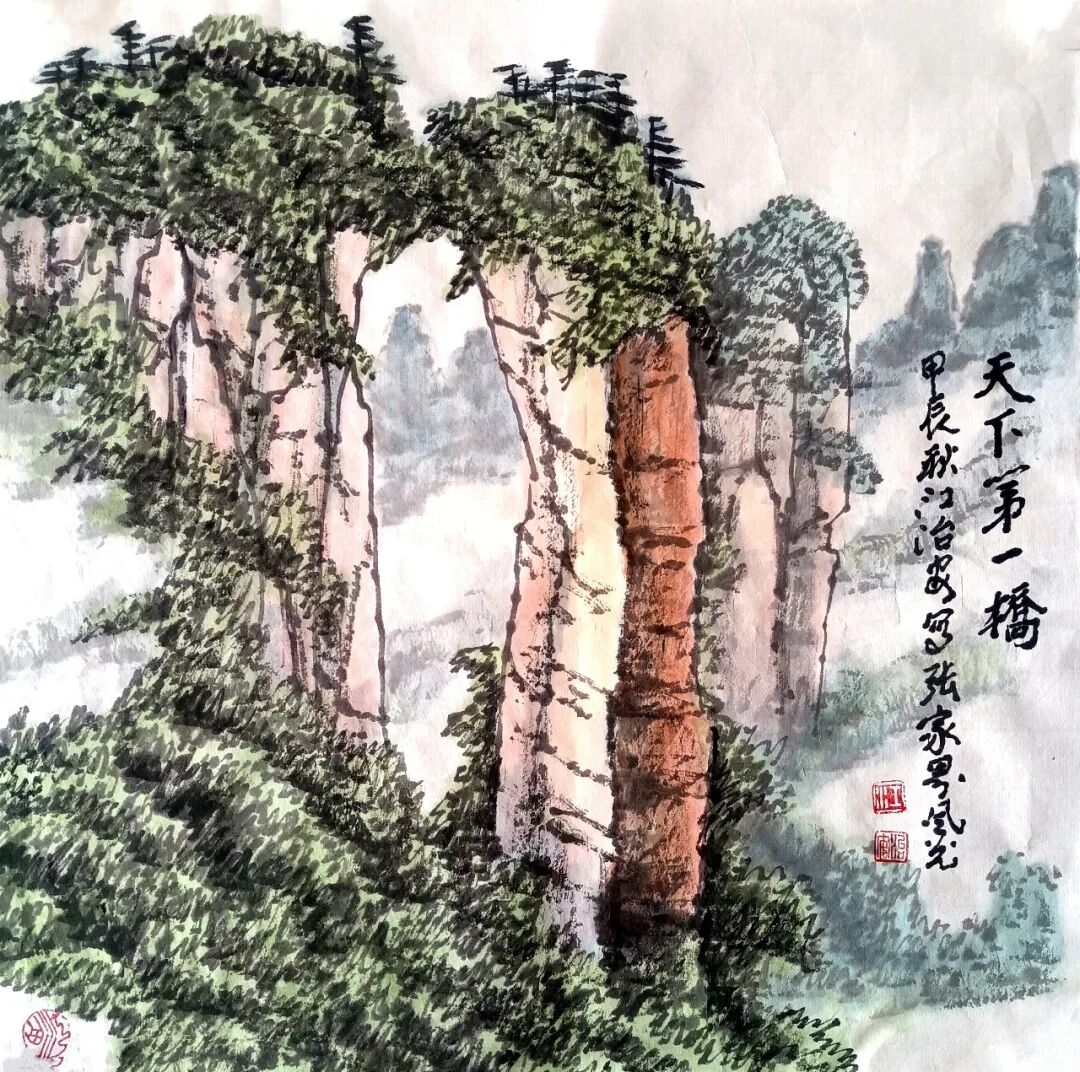 天下第一橋
甲辰秋江治安写张家界风光